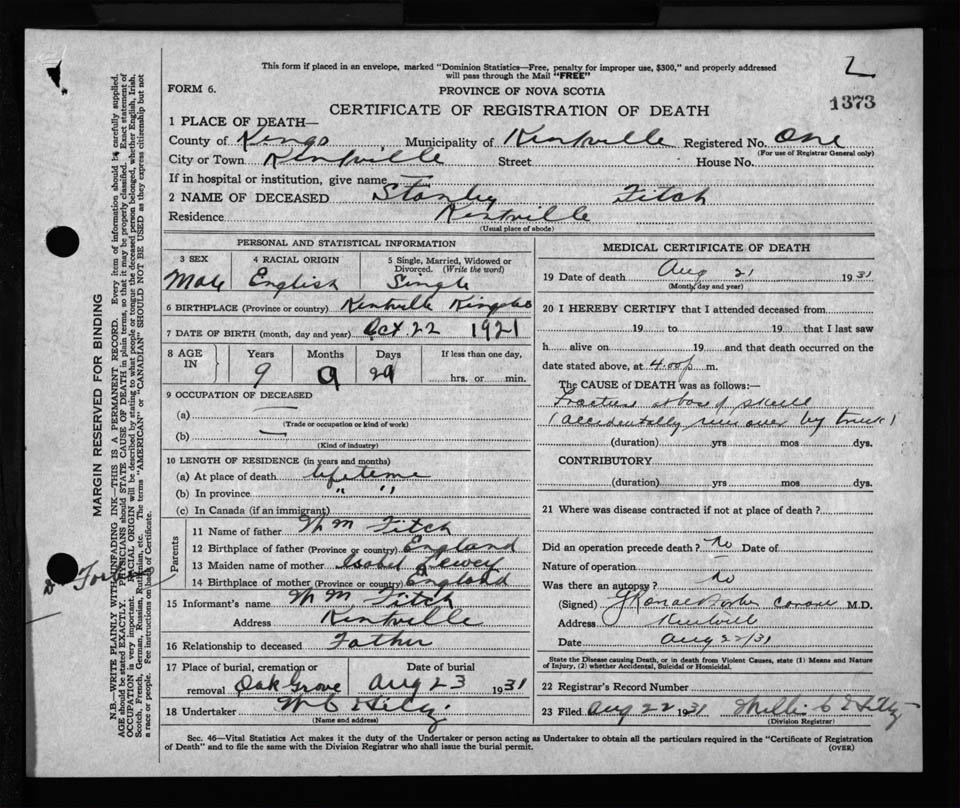 This form if placed in an envelope, marked "Dominion Statistics—Free, penalty for improper use, $300," and properly addressed
will pass through the Mail "FREE"
FORM 6.
PROVINCE OF NOVA SCOTIA
CERTIFICATE OF REGISTRATION OF DEATH
1373
1 PLACE OF DEATH—
County of Kings Municipality of Kentville Registered No. One
(For use of Registrar General only)
City or Town Kentville Street House No.
If in hospital or institution, give name
2 NAME OF DECEASED Stanley Fitch
Residence Kentville
(Usual place of abode)
PERSONAL AND STATISTICAL INFORMATION
3 SEX 4 RACIAL ORIGIN 5 Single, Married, Widowed or
Divorced. (Write the word)
Male English Single
6 BIRTHPLACE (Province or country) Kentville Kings Co
7 DATE OF BIRTH (month, day and year) Oct 22 1921
8 AGE IN Years Months Days If less than one day,
9 9 29 hrs. or min.
9 OCCUPATION OF DECEASED
(a)
(Trade or occupation or kind of work)
(b)
(Kind of industry)
10 LENGTH OF RESIDENCE (in years and months)
(a) At place of death lifetime
(b) In province " "
(c) In Canada (if an immigrant)
Parents
11 Name of father Wm Fitch
12 Birthplace of father (Province or country) England
13 Maiden name of mother Isabel Dewey
14 Birthplace of mother (Province or country) England
15 Informant's name Wm Fitch
Address Kentville
16 Relationship to deceased Father
17 Place of burial, cremation or Date of burial
removal Oak Grove Aug 23 1931
18 Undertaker W C
(Name and address)
MEDICAL CERTIFICATE OF DEATH
19 Date of death Aug 21 1931
(Month, day and year)
20 I HEREBY CERTIFY that I attended deceased from
19 to 19 that I last saw
h alive on 19 and that death occurred on the
date stated above, at 4.00 p m.
The CAUSE OF DEATH was as follows:—
Fracture at base of skull
(accidentally run over by truck)
(duration) yrs mos dys.
CONTRIBUTORY
(duration) yrs mos dys.
21 Where was disease contracted if not at place of death?
Did an operation precede death? No Date of
Nature of operation
Was there an autopsy? No
(Signed) M.D.
Address Kentville
Date Aug 22/31
State the Disease causing Death, or in death from Violent Causes, state (1) Means and Nature
of Injury, (2) whether Accidental, Suicidal or Homicidal.
22 Registrar's Record Number
23 Filed Aug 22 1931
(Division Registrar)
Sec. 46—Vital Statistics Act makes it the duty of the Undertaker or person acting as Undertaker to obtain all the particulars required in the "Certificate of Registration
of Death" and to file the same with the Division Registrar who shall issue the burial permit.
(OVER)
MARGIN RESERVED FOR BINDING
N.B.—WRITE PLAINLY WITH UNFADING INK—THIS IS A PERMANENT RECORD. Every item of information should be carefully supplied.
AGE should be stated EXACTLY. PHYSICIANS should STATE CAUSE OF DEATH in plain terms, so that it may be properly classified. Exact statement of
OCCUPATION is very important. RACIAL ORIGIN will be described by stating to what people or tongue the deceased person belonged, whether English, Irish,
Scotch, French, German, Russian, Ruthenian, etc. The terms "AMERICAN" or "CANADIAN" SHOULD NOT BE USED as they express citizenship but not
a race or people. Fee instructions on back of Certificate.